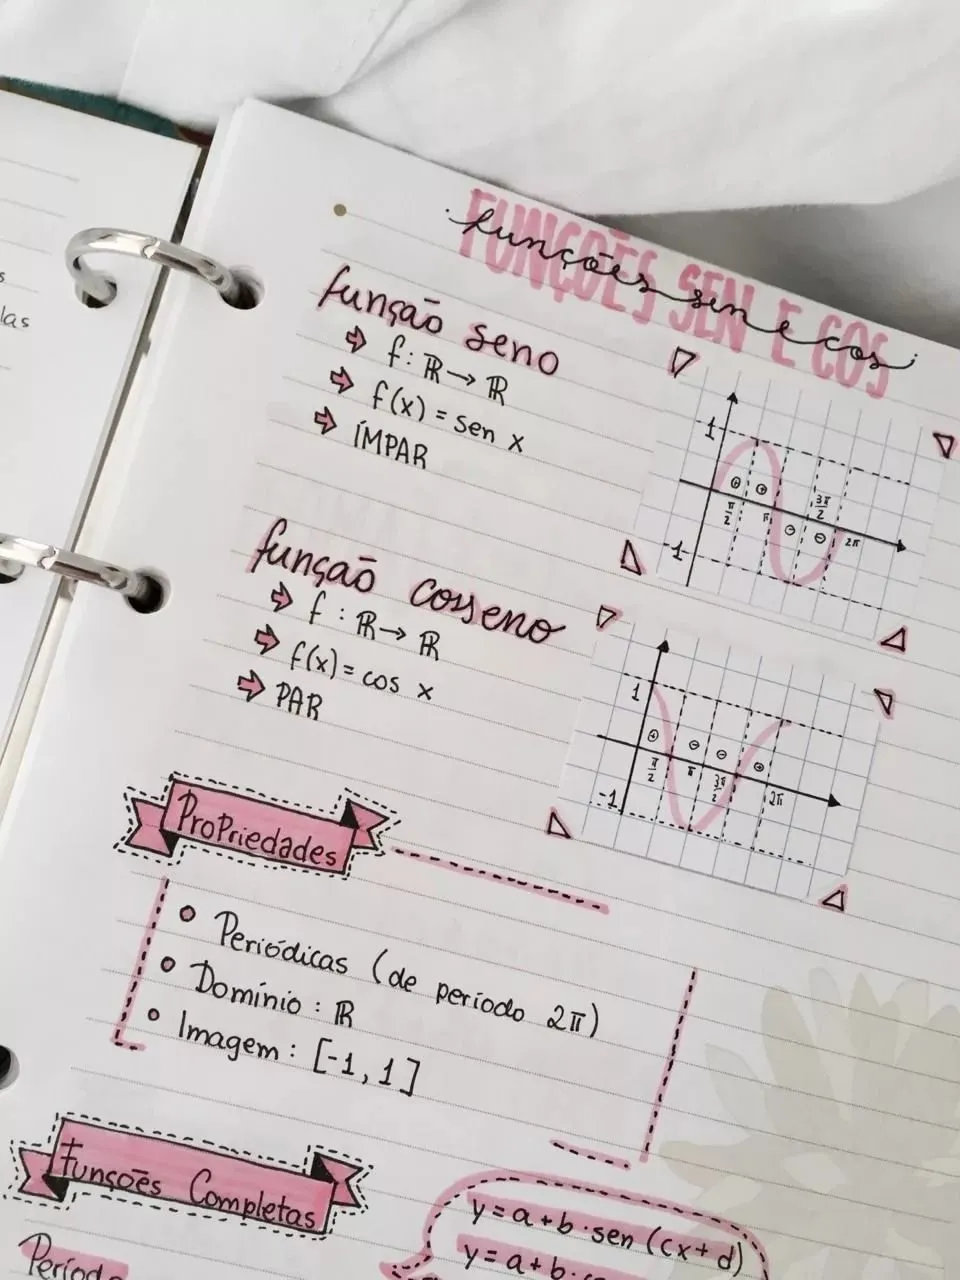 s
las
FUNÇÕES SEN E COS
funções sen e cos
função seno
⇨ f: ℝ → ℝ
⇨ f(x) = sen x
⇨ ÍMPAR
1
+ +
π/2 π 3π/2 2π
- -
-1
função cosseno
⇨ f : ℝ → ℝ
⇨ f(x) = cos x
⇨ PAR
1
+ - - +
π/2 π 3π/2 2π
-1
Propriedades
• Periódicas (de período 2π)
• Domínio : ℝ
• Imagem : [-1, 1]
Funções Completas
y = a + b · sen (cx + d)
y = a + b ·
Período